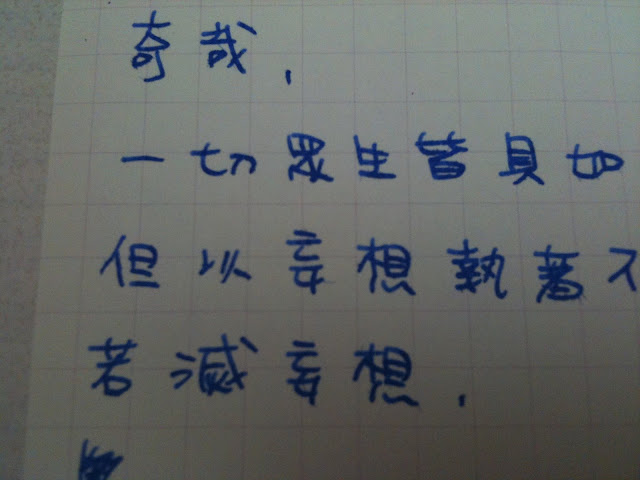 奇哉,
一切眾生皆具如
但以妄想執著不
若滅妄想.